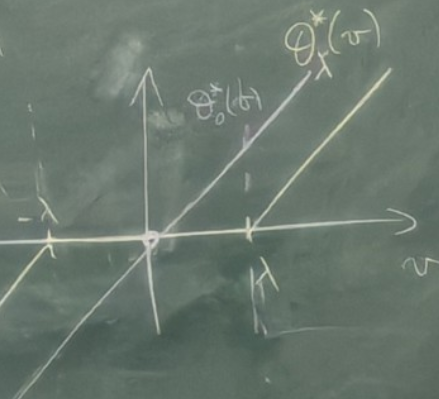 θ*_λ(v)
θ*_0(v)
-λ
λ
v